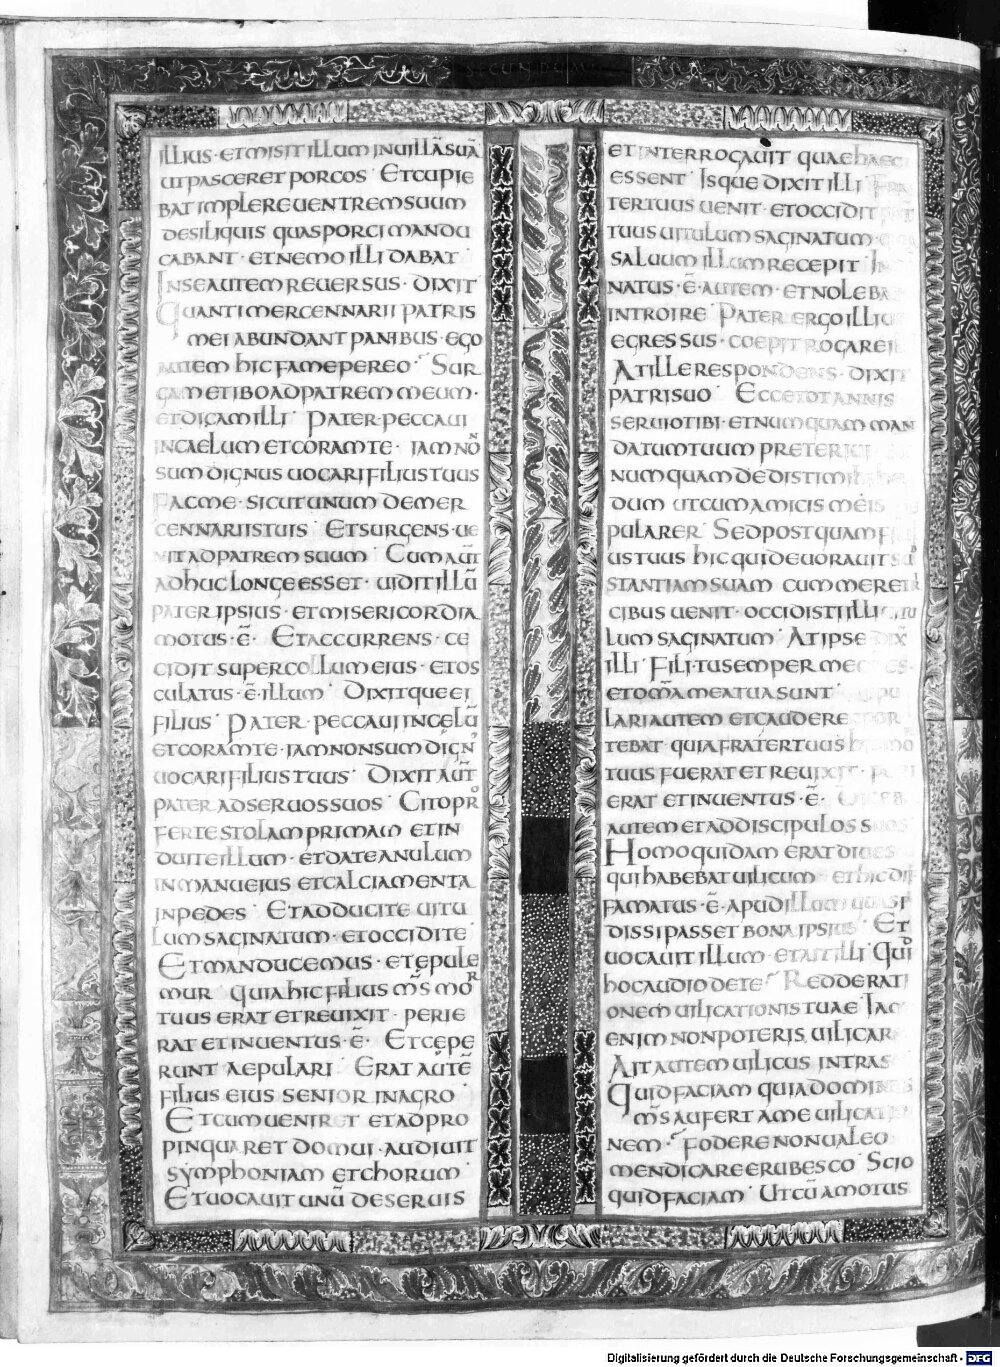 SECUNDUM
ILLIUS · ET MISIT ILLUM IN UILLĀ SUĀ
UT PASCERET PORCOS · ET CUPIE
BAT IMPLERE UENTREM SUUM
DE SILIQUIS QUAS PORCI MANDU
CABANT · ET NEMO ILLI DABAT ·
IN SE AUTEM REUERSUS · DIXIT
QUANTI MERCENNARII PATRIS
MEI ABUNDANT PANIBUS · EGO
AUTEM HIC FAME PEREO · SUR
GAM ET IBO AD PATREM MEUM ·
ET DICAM ILLI · PATER · PECCAUI
IN CAELUM ET CORAM TE · IAM NŌ
SUM DIGNUS UOCARI FILIUS TUUS
FAC ME · SICUT UNUM DE MER
CENNARIIS TUIS · ET SURGENS · UE
NIT AD PATREM SUUM · CUM AUT̄
ADHUC LONGE ESSET · UIDIT ILLŪ
PATER IPSIUS · ET MISERICORDIA
MOTUS · Ē · ET ACCURRENS · CE
CIDIT SUPER COLLUM EIUS · ET OS
CULATUS · Ē · ILLUM · DIXITQUE EI
FILIUS · PATER · PECCAUI IN CĘLŪ
ET CORAM TE · IAM NON SUM DIGN
UOCARI FILIUS TUUS · DIXIT AUT̄
PATER AD SERUOS SUOS · CITO PR
FERTE STOLAM PRIMAM ET IN
DUITE ILLUM · ET DATE ANULUM
IN MANU EIUS ET CALCIAMENTA
IN PEDES · ET ADDUCITE UITU
LUM SAGINATUM · ET OCCIDITE
ET MANDUCEMUS · ET EPULE
MUR · QUIA HIC FILIUS M̄S MOR
TUUS ERAT ET REUIXIT · PERIE
RAT ET INUENTUS · Ē · ET CĘPE
RUNT AEPULARI · ERAT AUTĒ
FILIUS EIUS SENIOR IN AGRO
ET CUM UENIRET ET ADPRO
PINQUARET DOMUI · AUDIUIT
SYMPHONIAM ET CHORUM ·
ET UOCAUIT UNŪ DE SERUIS
ET INTERROGAUIT QUAE HAEC
ESSENT · ISQUE DIXIT ILLI · FRA
TER TUUS UENIT · ET OCCIDIT PAT
TUUS UITULUM SAGINATUM ·
SALUUM ILLUM RECEPIT · IN
NATUS · Ē · AUTEM · ET NOLEBA
INTROIRE · PATER ERGO ILLIU
EGRESSUS · COEPIT ROGARE IL
AT ILLE RESPONDENS · DIXIT
PATRI SUO · ECCE TOT ANNIS
SERUIO TIBI · ET NUMQUAM MAN
DATUM TUUM PRETERI
NUMQUAM DEDISTI MI
DUM UT CUM AMICIS MEIS
PULARER · SED POSTQUAM FILI
US TUUS HIC QUI DEUORAUIT SU
STANTIAM SUAM CUM MERETR
CIBUS UENIT · OCCIDISTI ILLI UITU
LUM SAGINATUM · AT IPSE DIX̄
ILLI · FILI · TU SEMPER ME
ET OM̄A MEA TUA SUNT · PU
LARI AUTEM ET GAUDERE OPOR
TEBAT · QUIA FRATER TUUS HIC MO
TUUS FUERAT ET REUIXIT · PERI
ERAT ET INUENTUS · Ē · DICEB
AUTEM ET AD DISCIPULOS SUOS
HOMO QUIDAM ERAT DIUES
QUI HABEBAT UILICUM · ET HIC DIF
FAMATUS · Ē · APUD ILLUM QUASI
DISSIPASSET BONA IPSIUS · ET
UOCAUIT ILLUM · ET AIT ILLI · QUID
HOC AUDIO DE TE · REDDE RATI
ONEM UILICATIONIS TUAE · IAM
ENIM NON POTERIS UILICAR
AIT AUTEM UILICUS INTRA S
QUID FACIAM QUIA DOMINUS
M̄S AUFERT A ME UILICATIO
NEM · FODERE NON UALEO
MENDICARE ERUBESCO · SCIO
QUID FACIAM · UT CŪ AMOTUS
Digitalisierung gefördert durch die Deutsche Forschungsgemeinschaft - DFG